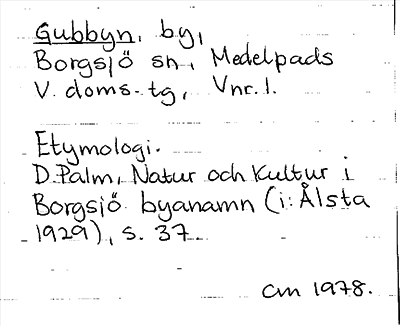 Gubbyn, by,
Borgsjö sn, Medelpads
V. doms. tg, Vnr. 1.
Etymologi.
D. Palm, Natur och kultur i
Borgsjö byanamn (i: Ålsta
1929), s. 37.
CM 1978.